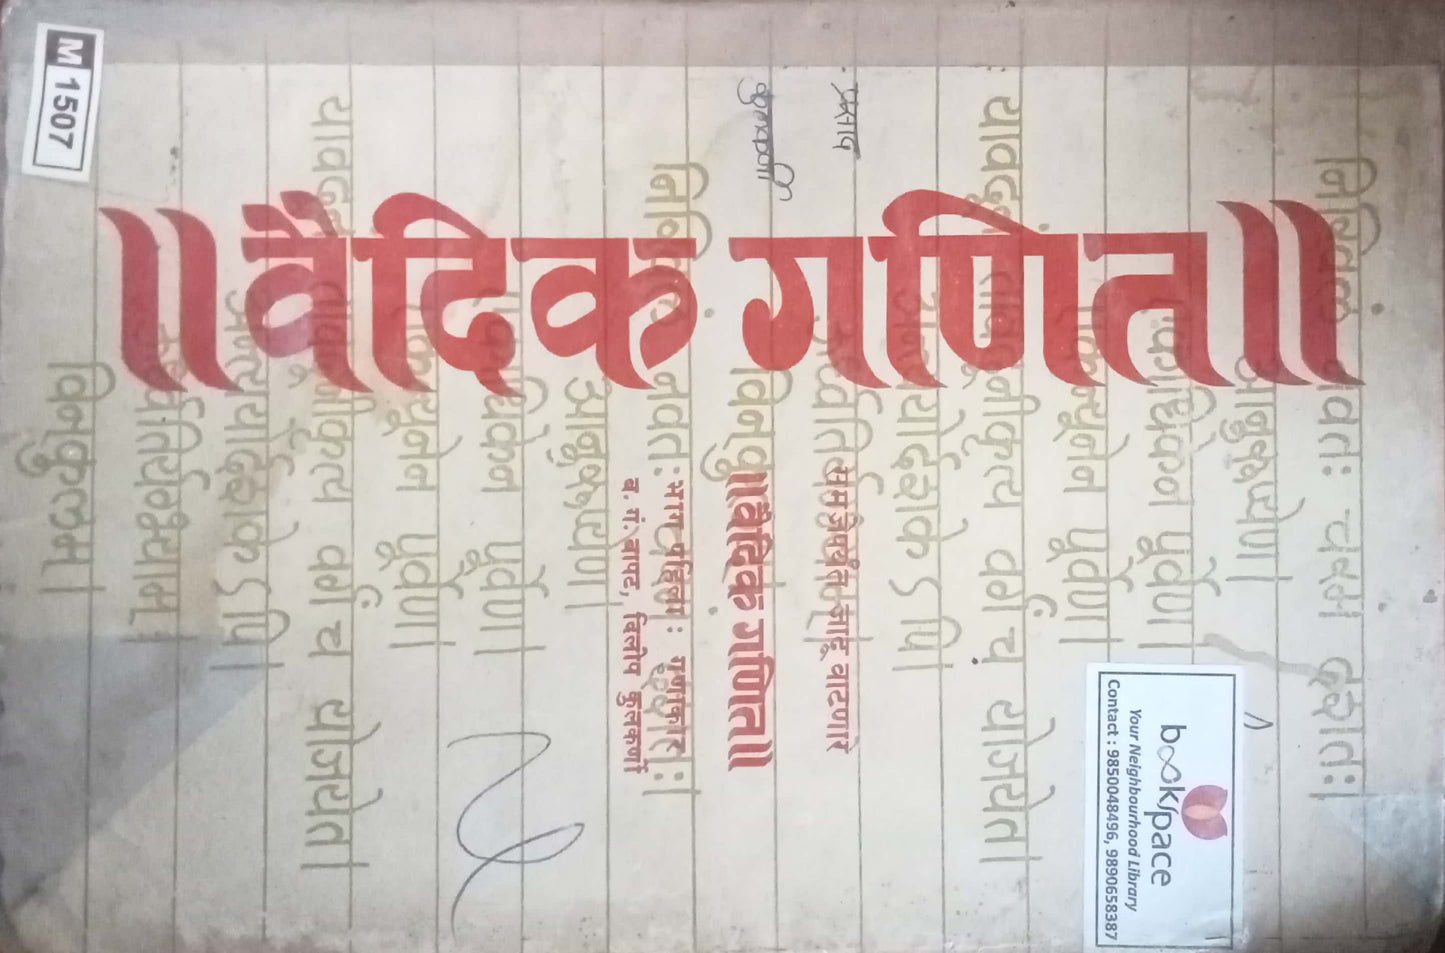 ॥वैदिक गणित॥
M 1507
निखिलं नवतः चरमं दशतः।
आनुरूप्येण।
एकाधिकेन पूर्वेण।
एकन्यूनेन पूर्वेण।
यावदूनं तावदूनीकृत्य वर्गं च योजयेत।
अन्त्ययोर्दशके ऽपि।
समजेपर्यंत जादू वाटणारे
॥वैदिक गणित॥
भाग पहिला : गुणाकार
ब. गं. बापट, दिलीप कुलकर्णी
निखिलं नवतः
आनुरूप्येण।
एकाधिकेन पूर्वेण।
एकन्यूनेन पूर्वेण।
यावदूनं तावदूनीकृत्य वर्गं च योजयेत।
अन्त्ययोर्दशके ऽपि।
ऊर्ध्वतिर्यग्भ्याम्।
विनकुलम।
कुलकर्णी
bookspace
Your Neighbourhood Library
Contact : 9850048496, 9890658387